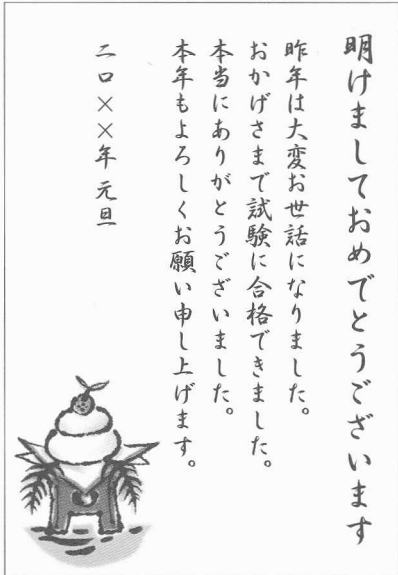 明けましておめでとうございます
昨年は大変お世話になりました。
おかげさまで試験に合格できました。
本当にありがとうございました。
本年もよろしくお願い申し上げます。
二〇××年 元旦